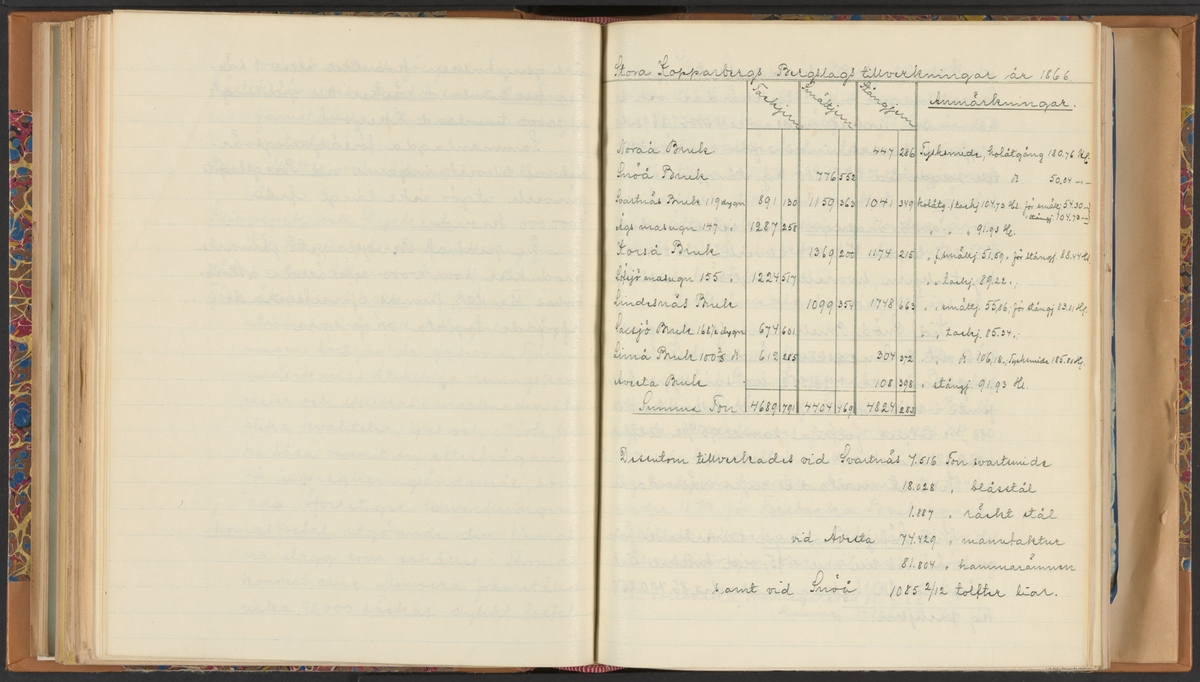 Stora Kopparbergs Bergslags tillverkningar år 1866
Tackjern Smältjern Stångjern Anmärkningar.
Noraå Bruk 447 286 Tysksmide, kolåtgång 180.76 Hl.
Snöå Bruk 776 552 D 50,04 -"-
Svartnäs Bruk 119 dygn 891 130 1159 363 1041 349 kolåtg. tackj 104.73 Hl. för smältj 54.30
stångj. 104.73
Ågs masugn 147 " 1287 258 " " 91.93 Hl.
Korså Bruk 1369 200 1174 215 " f. smältj 51.59, för stångj. 88.44 Hl
masugn 155 " 1224 517 " " tackj. 89.22.
Lindesnäs Bruk 1099 354 1748 663 " " smältj. 55,06; för stångj 83.01 Hl.
Bruk dygn 674 601 " " tackj. 85.34.
Limå Bruk 612 285 304 372 D 106,18, Tysksmide 185.81 Hl.
Avesta Bruk 108 398 " stångj. 91.93 Hl.
Summa Ton 4689 791 4404 469 4824 283
Dessutom tillverkades vid Svartnäs 7.516 Ton svartsmide
18.028 " blåsstål
1.887 " räckt stål
vid Avesta 74.429 " manufaktur
81.804 " hammarämnen
samt vid Snöå 1085 2/12 tolfter liar.